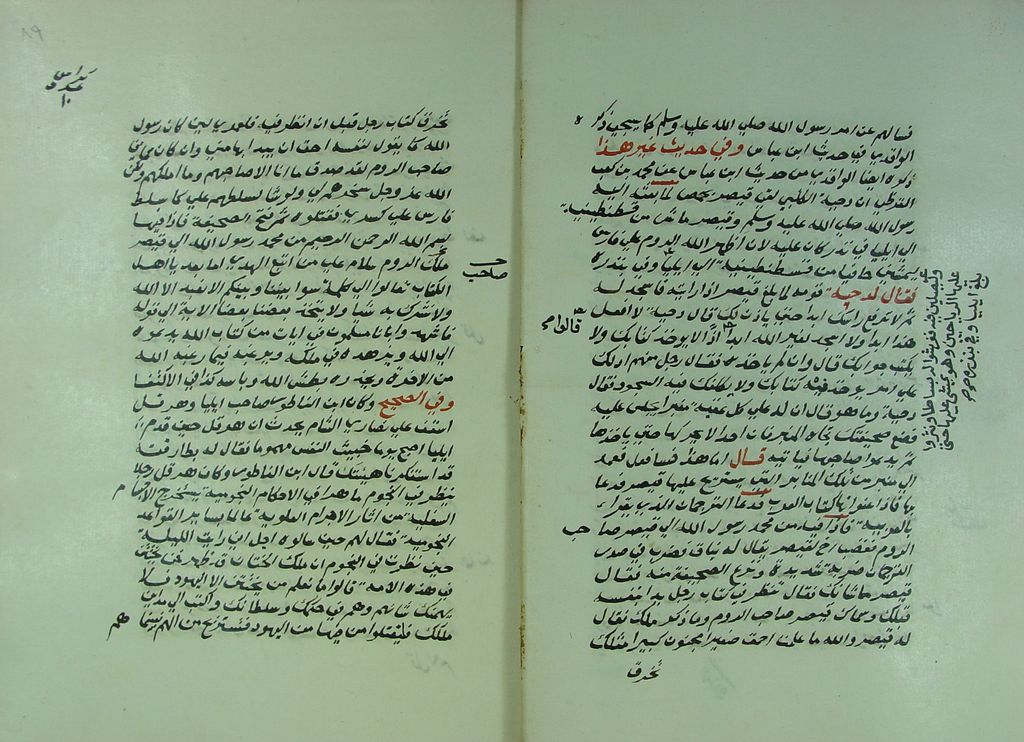 فسالهم عن امر رسول الله صلي الله عليه وسلم كما سيجي ذكره
الواقدي في حديث ابن عباس وفي حديث غير هذا
ذكره ايضا الواقدي من حديث ابن عباس عن محمد بن كعب
القرظي ان دحية الكلبي لقي قيصر بحمص لما بعثه اليه
رسول الله صلي الله عليه وسلم وقيصر ماش من قسطنطينية
الي ايليا في نذر كان عليه لان اظهر الله الروم علي فارس
يمشي حافيا من قسطنطينية الي ايليا وفي بنذره
فقال لدحية قومه لما بلغ قيصر اذا رايته فاسجد له
ثم لا ترفع راسك ابدا حتي ياذن لك قال دحية لا افعل
هذا ابدا ولا اسجد لغير الله ابدا اذا لا يوخذ كتابك ولا
يكتب جوابك قال وان لم ياخذه فقال رجل منهم ادلك
علي امر يوخذ فيه كتابك ولا يكلفك فيه السجود فقال
دحية وما هو قال ان له علي كل عقبة منبرا يجلس عليه
فضع صحيفتك تجاه المنبر فان احدا لا يحركها حتي ياخذها
ثم يدعوا صاحبها فياتيه قال اما هذا فسافعل فعمد
الي منبر من تلك المنابر التي يستريح عليها قيصر فدعا
بها فاذا عنوانها كتاب العرب فدعا الترجمان الذي يقراء
بالعربية فاذا فيه من محمد رسول الله الي قيصر صاحب
الروم فغضب اخ لقيصر يقال له نياق فضرب في صدر
الترجمان ضربة شديدة ونزع الصحيفة منه فقال
قيصر ما شانك فقال تنظر في كتاب رجل بدا بنفسه
قبلك وسماك قيصر صاحب الروم وما ذكر ملك فقال
له قيصر والله ما علمت احمق صغيرا مجنون كبيرا مثلك
تحرق
قالوا
تحرق كتاب رجل قبل ان انظر فيه فلعمري لين كان رسول
الله كما يقول لنفسه احق ان يبدا بها مني وان كان سماني
صاحب الروم لقد صدق ما انا الا صاحبهم وما املكهم ولكن
الله عز وجل سخرهم لي ولو شا لسلطهم علي كما سلط
فارس علي كسري فقتلوه ثم فتح الصحيفة فاذا فيها
بسم الله الرحمن الرحيم من محمد رسول الله الي قيصر
صاحب
ملك الروم سلام علي من اتبع الهدي اما بعد يا اهل
الكتاب تعالوا الي كلمة سوا بيننا وبينكم الا نعبد الا الله
ولا نشرك به شيا ولا يتخذ بعضنا بعضا الاية الي قوله
فاشهدوا بانا مسلمون في ايات من كتاب الله يدعوه
الي الله ويزهده في ملكه ويرغبه فيما رغبه الله
من الاخرة ويحذره بطش الله وباسه كذا في الاكتفا
وفي الصحيح وكان ابن الناطور صاحب ايليا وهرقل
اسقف علي نصاري الشام يحدث ان هرقل حين قدم
ايليا اصبح يوما خبيث النفس مهموما فقال له بطارقته
قد استنكرنا هيئتك قال ابن الناطور وكان هرقل رجلا
ينظر في النجوم ماهرا في الاحكام النجومية يستخرج الاحكام
السفلية من اثار الاجرام العلوية عالما بساير القواعد
النجومية فقال لهم حين سالوه اجل اني رايت الليلة
حين نظرت في النجوم ان ملك الختان قد ظهر فمن يختتن
في هذه الامة قالوا ما نعلم من يختتن الا اليهود فلا
يهمنك شانهم وهم في حكمك وسلطانك واكتب الي مداين
ملكك فليقتلوا من فيها من اليهود فتستريح من الهم فبينما هم